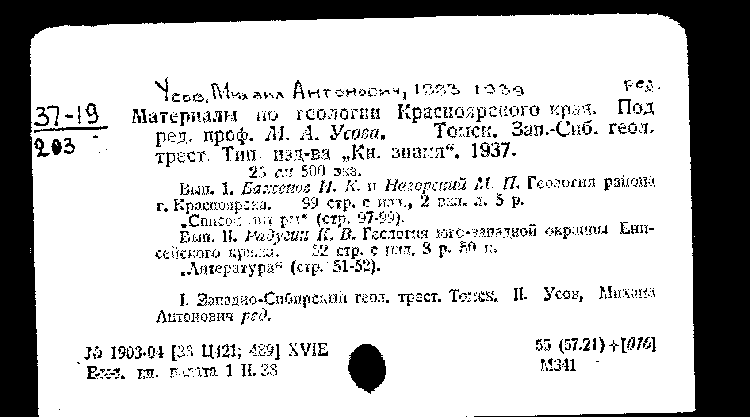 Усов, Михаил Антонович, 1883-1939 ред.
37-19
203
Материалы по геологии Красноярского края. Под
ред. проф. М. А. Усова. Томск. Зап.-Сиб. геол.
трест. Тип. изд-ва „Кн. знамя“. 1937.
23 см 500 экз.
Вып. I. Баженов И. К. и Нагорский М. П. Геология района
г. Красноярска. 99 стр. с илл., 2 вкл. л. 5 р.
„Список лит-ры“ (стр. 97-99).
Вып. II. Радугин К. В. Геология юго-западной окраины Ени-
сейского кряжа. 52 стр. с илл. 3 р. 50 к.
„Литература“ (стр. 51-52).
I. Западно-Сибирский геол. трест. Томск. II. Усов, Михаил
Антонович ред.
№ 1903-04 [38 Ц421; 489] XVIE 55 (57.21)+[016]
Всес. кн. палата 1 II. 38 М341